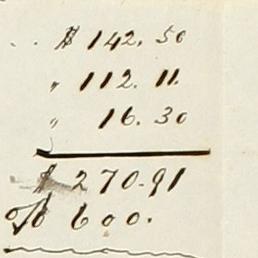 .. $ 142. 50
" 112. 11.
" 16. 30
$ 270.91
600.